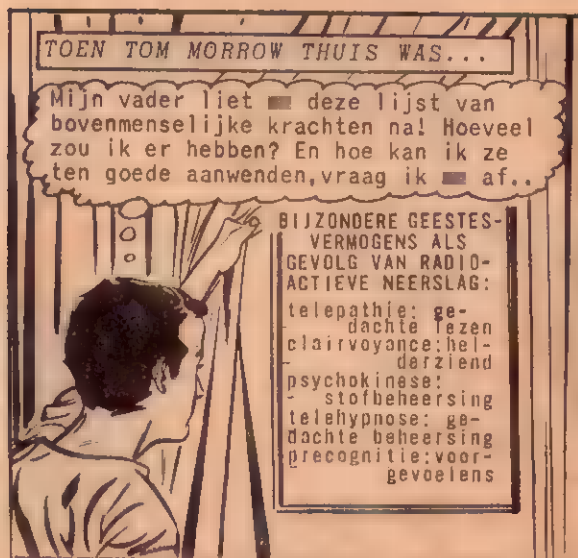 TOEN TOM MORROW THUIS WAS...
Mijn vader liet deze lijst van
bovenmenselijke krachten na! Hoeveel
zou ik er hebben? En hoe kan ik ze
ten goede aanwenden,vraag ik af..
BIJZONDERE GEESTES-
VERMOGENS ALS
GEVOLG VAN RADIO-
ACTIEVE NEERSLAG:
telepathie: ge-
dachte lezen
clairvoyance:hel-
derziend
psychokinese:
- stofbeheersing
telehypnose: ge-
dachte beheersing
precognitie:voor-
gevoelens